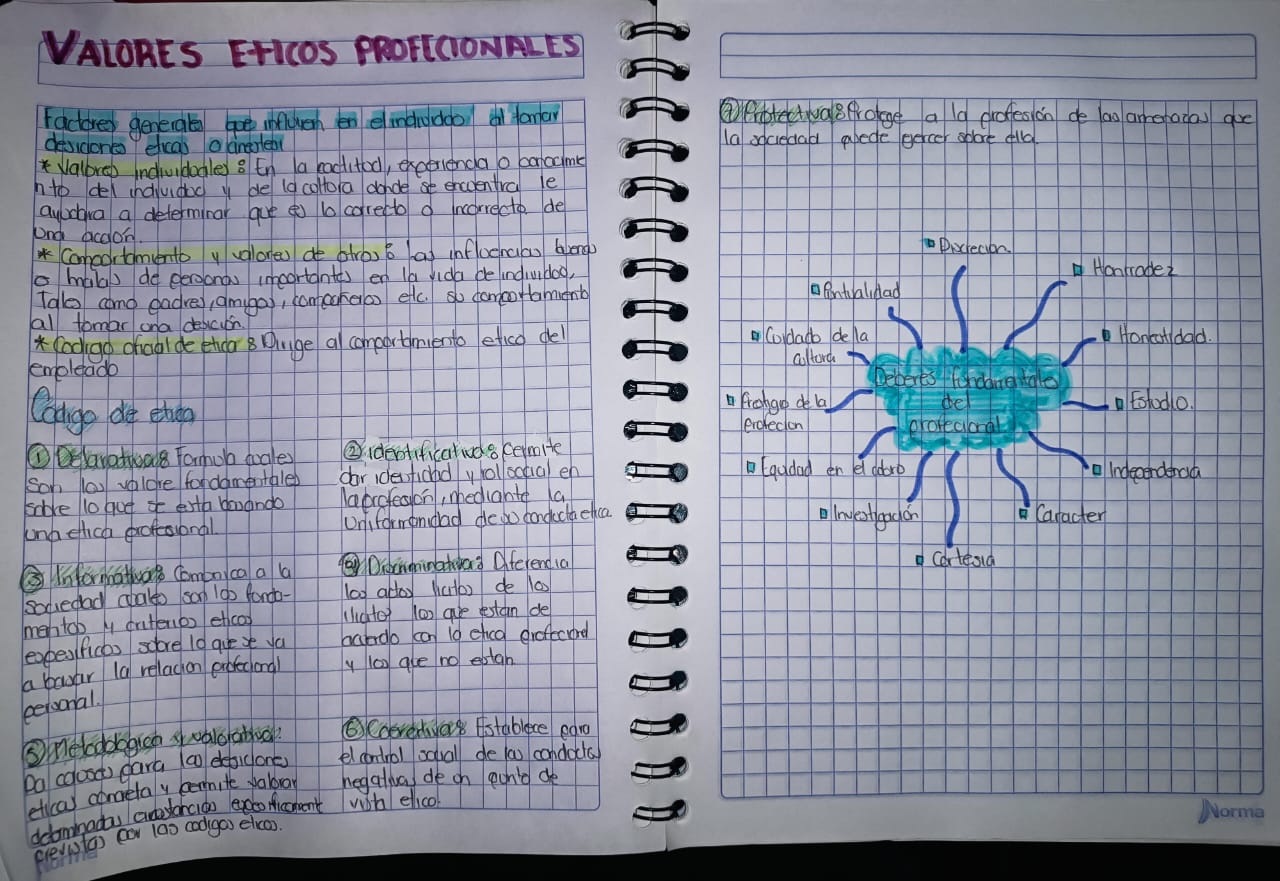 VALORES ETICOS PROFECIONALES
Factores generales que influyen en el individuo al tomar
desiciones eticas o antietei
* Valores individuales: En la actitud, experiencia o conocime
nto del individuo y de la coltora donde se encuentra le
ayudara a determinar que es lo correcto o incorrecto de
una acción.
* Comportamiento y valores de otros: las influencias buenas
o malas de personas importantes en la vida de individuo,
Tales como padres, amigos, compañeros etc. su comportamiento
al tomar una desición.
* Codigo oficial de etica: Dirige al comportamiento etico del
empleado
Código de etica
① Delarativa: Formula cuales
son los valore fundamentales
sobre lo que se esta basando
una etica profesional.
② identificativa: Permite
dar identidad y rol social en
la profesión, mediante la
Uniformanidad de su conducta etica.
③ Informativa: Comunica a la
sociedad cuales son los funda-
mentos y criterios eticos
espesificos sobre lo que se va
a basar la relacion profecional
personal.
④ Discriminativa: Diferencia
los actos licitos de los
ilicitos los que estan de
acuerdo con la etica profecional
y los que no estan
⑤ Metodologica y valorativa:
Da causas para las desiciones
eticas concreta y permite valorar
determinadas circustancias especificament
previstas por los codigos eticos.
⑥ Coerctiva: Establece para
el control social de las conductas
negativas de un punto de
vista etico.
⑦ Protectiva: Protege a la profesión de las amenazas que
la sociedad puede ejercer sobre ella.
Discrecion.
Honrradez
Puntualidad
Cuidado de la
cultura
Honestidad.
Deberes fundamentales
del
profecional
Protigio de la
profecion
Estudio.
Equidad en el cobro
Independencia
Investigación
Caracter
Cortesia
Norma
Norma